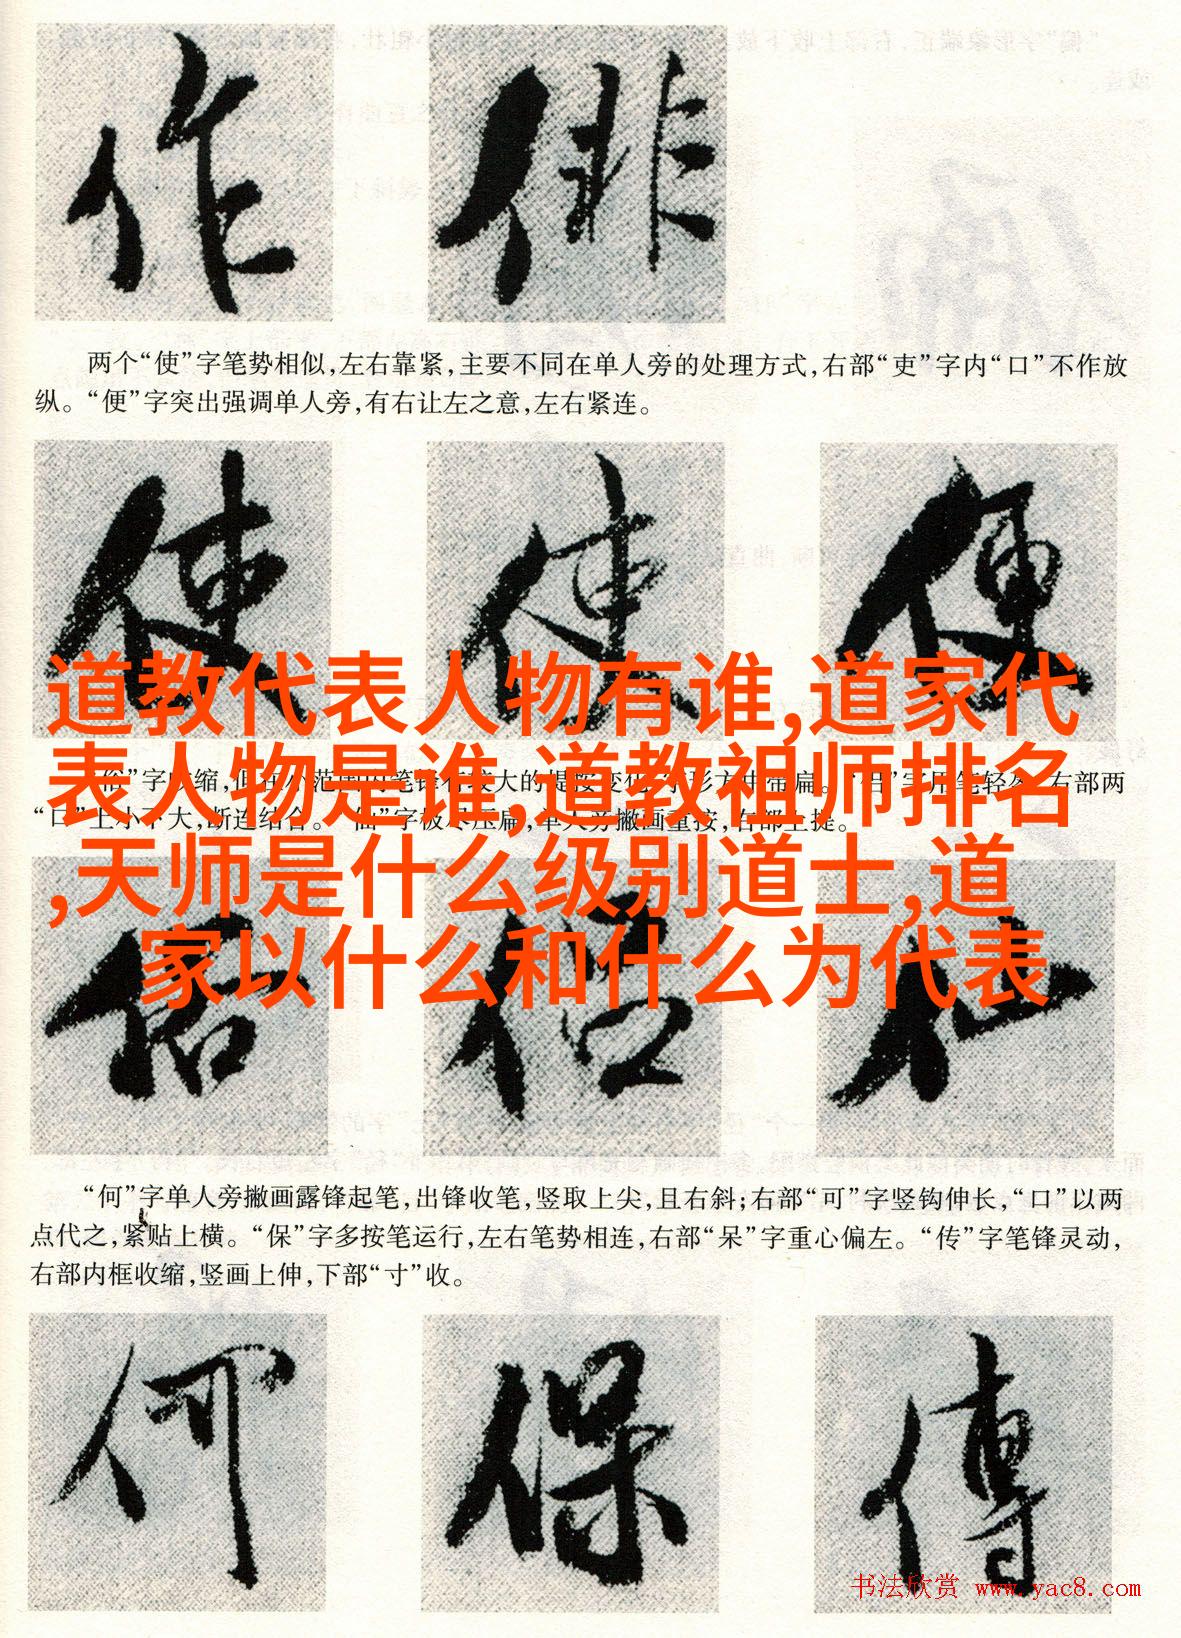 作 俳
两个“使”字笔势相似,左右靠紧,主要不同在单人旁的处理方式,右部“吏”字内“口”不作放
纵。“便”字突出强调单人旁,有右让左之意,左右紧连。
使 使 便
道教代表人物有谁,道家代
表人物是谁,道教祖师排名
,天师是什么级别道士,道
家以什么和什么为代表
字用笔轻 右部两
“口”上小下大,断连结合。“仙”字极尽压扁,单人旁撇画重按,右部上提。
佑 侣 仙
“何”字单人旁撇画露锋起笔,出锋收笔,竖取上尖,且右斜;右部“可”字竖钩伸长,“口”以两
点代之,紧贴上横。“保”字多按笔运行,左右笔势相连,右部“呆”字重心偏左。“传”字笔锋灵动,
右部内框收缩,竖画上伸,下部“寸”收。
何 保 傳
书法欣赏 www.yac8.com